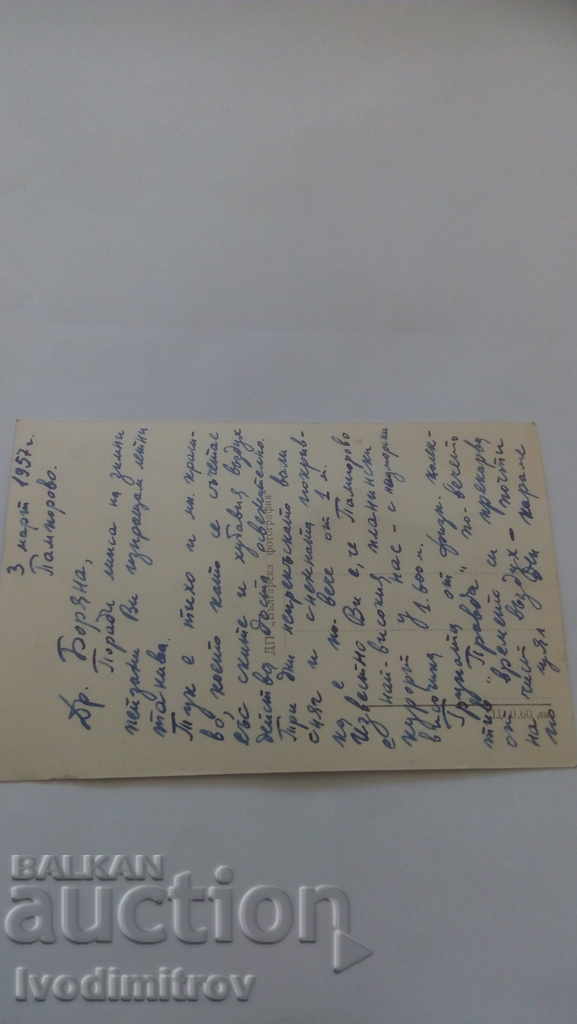 3 март 1957 г.
Пампорово.
Др. Боряна,
Поради липса на зимни
пейзажи Ви изпращам летни
такива.
Тук е тихо и мн. краси-
во, което като се съчетае
със ските и хубавия въздух
действа доста
При дни непрекъснато вали
сняг и снежната покрив-
ка е по-вече от 1 м.
Известно Ви е, че Пампорово
е най-високия планински
курорт у нас - с надморска
височина 1600 м.
Групата от физк. колек-
тив "Правда" по-вечето
от времето си прекарва
на чист въздух - почти
по цял ден караме
ДП „Българска фотография“
Ц. 0.60 лв.
BALKAN
auction
Ivodimitrov